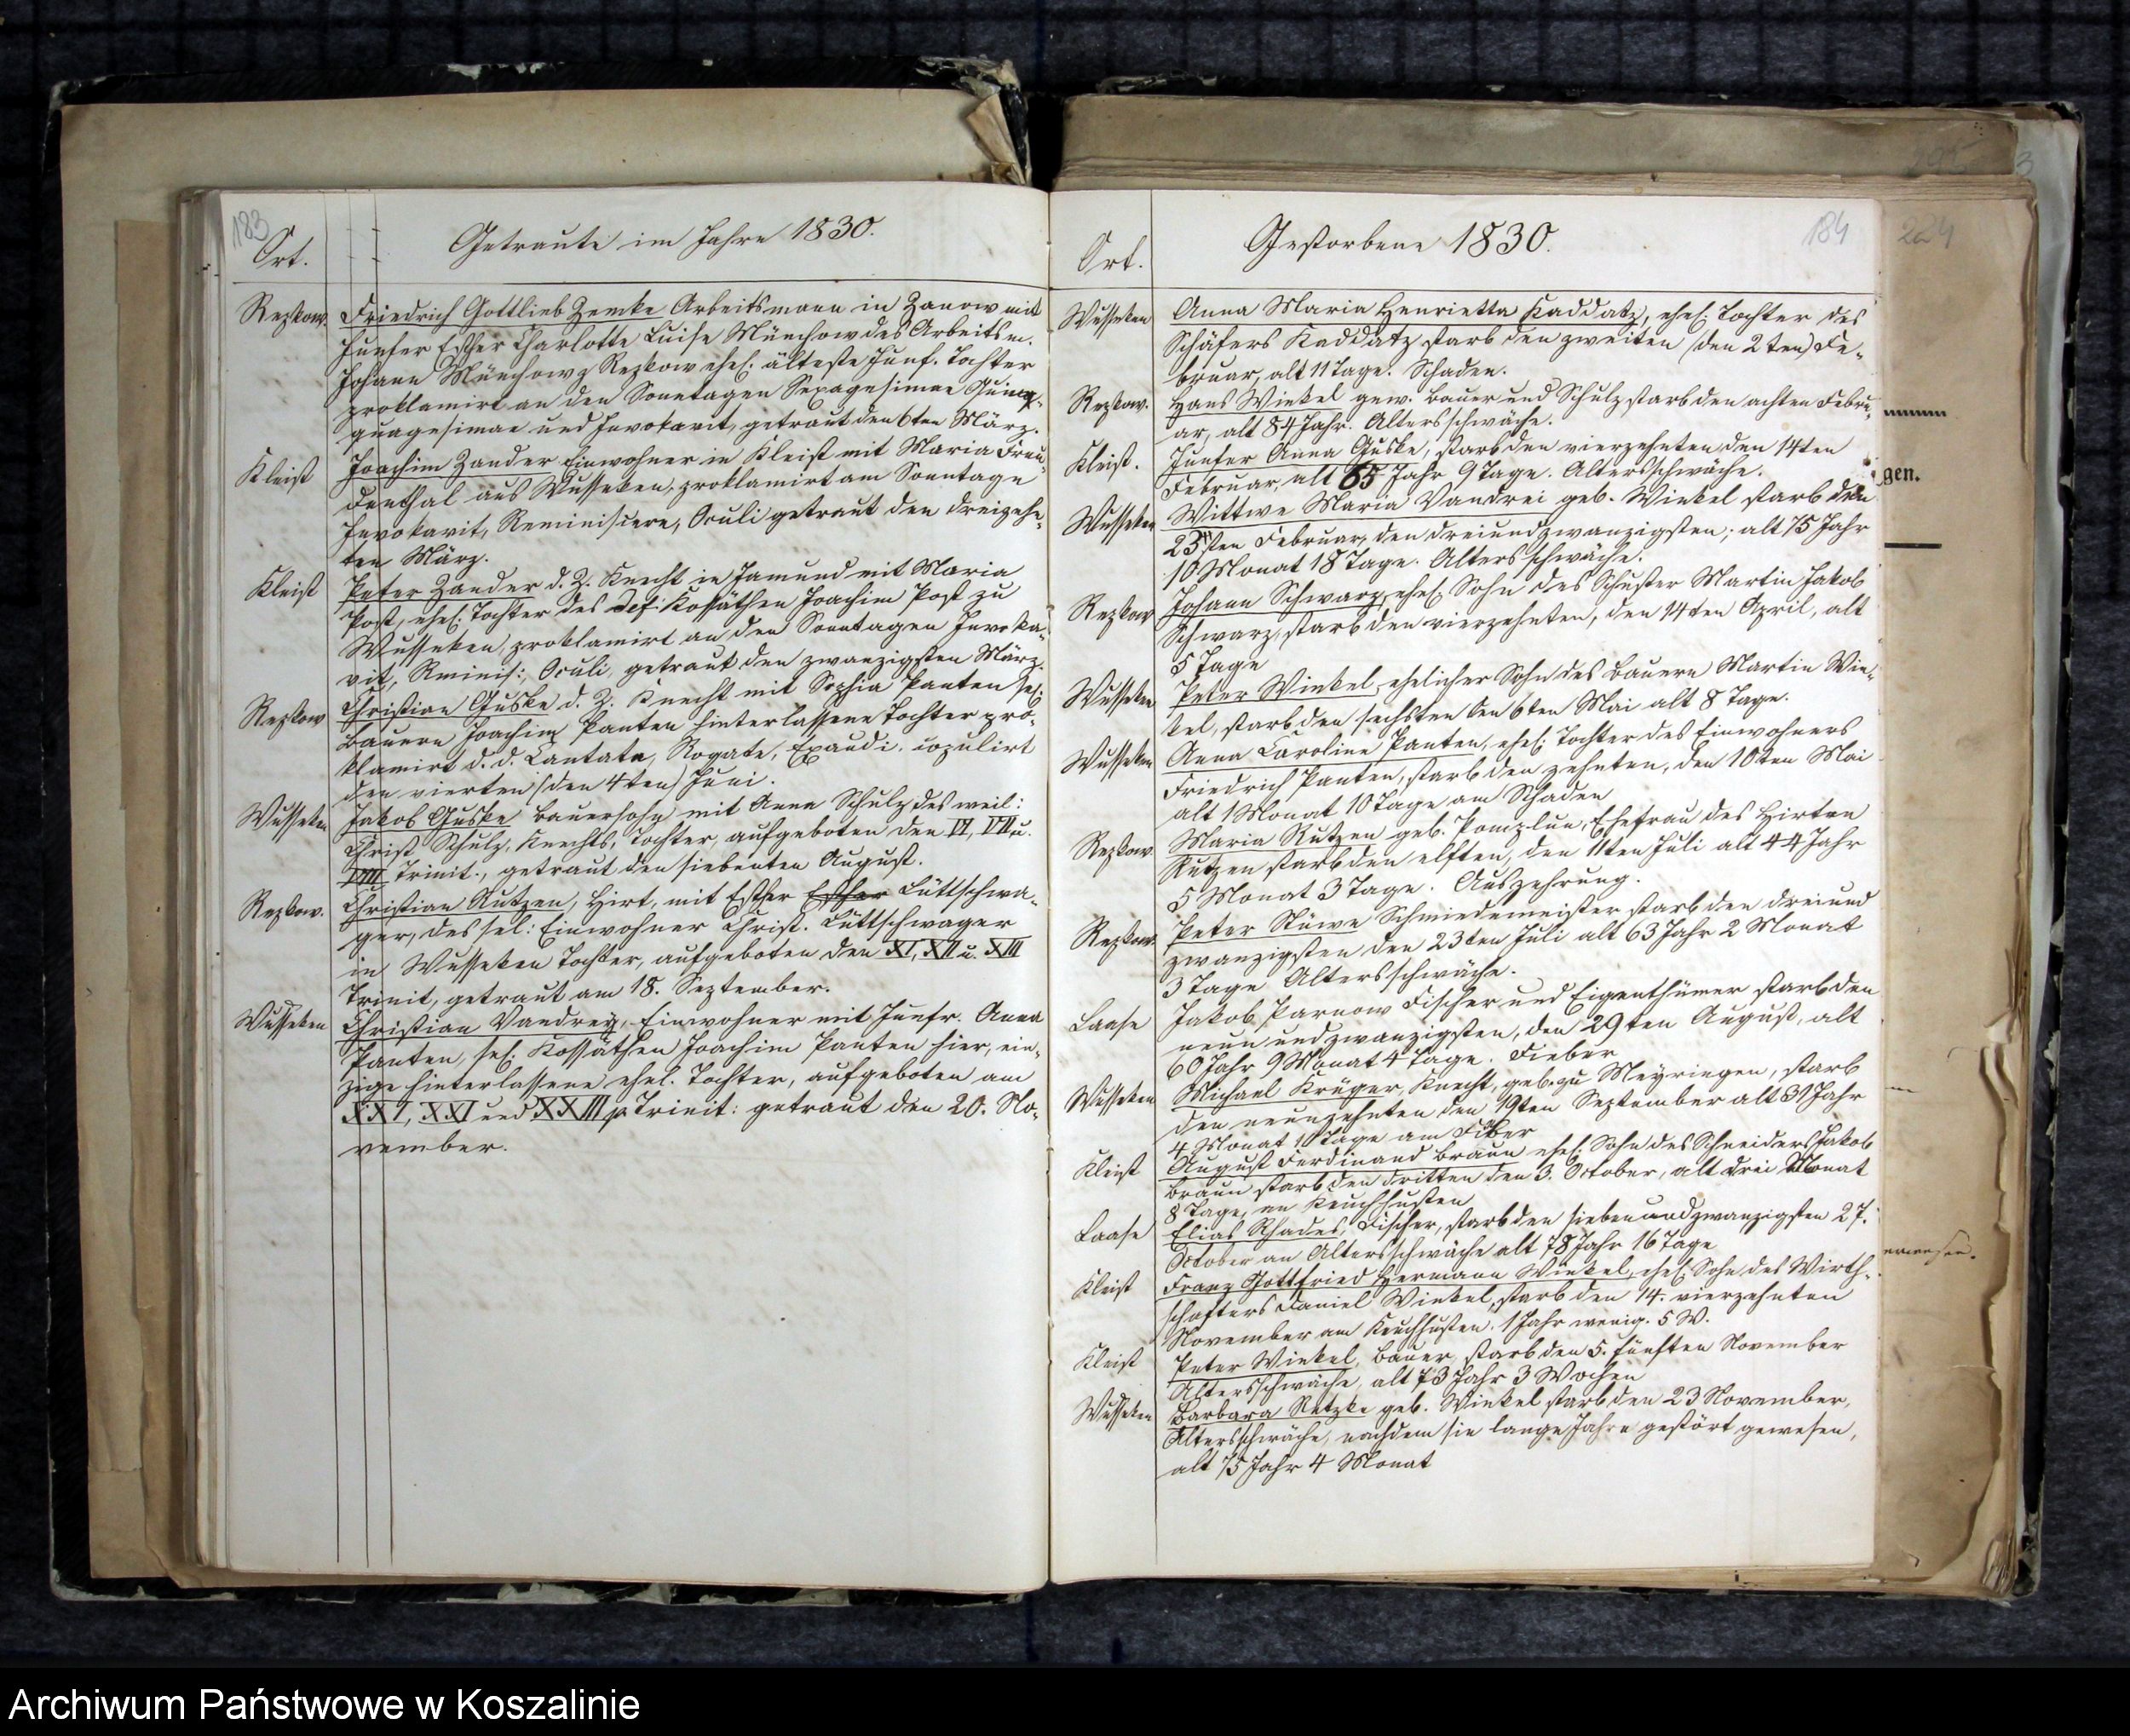 183
Ort.
Getraute im Jahre 1830.
Rezkow. Friedrich Gottlieb Zemke Arbeitsmann in Zanow mit
Junfer Esther Charlotte Luise Münchow des Arbeitsm.
Johann Münchow z Rezkow ehel. älteste Junf. Tochter
proklamirt an den Sonntagen Sexagesimae Quinq-
quagesimae und Invokavit, getraut den 6ten März.
Kleist Joachim Zander Einwohner in Kleist mit Maria Freu-
denthal aus Wusseken, proklamirt am Sonntage
Invokavit, Reminiscere, Oculi getraut den dreizehn-
ten März.
Kleist Peter Zander d. Z. Knecht in Jamund mit Maria
Post, ehel. Tochter des def. Kossäthen Joachim Post zu
Wusseken, proklamirt an den Sonntagen Invoka-
vit, Reminis:, Oculi, getraut den zwanzigsten März.
Rezkow Christian Guske d. Z. Knecht mit Sophia Panten sel.
Bauern Joachim Panten hinterlassene Tochter pro-
klamirt d. d. Cantate, Rogate, Exaudi. copulirt
den vierten (den 4ten) Juni.
Wusseken Jakob Guske Bauersohn mit Anna Schulz des weil:
Christ Schulz, Knechts, Tochter, aufgeboten den VI, VII u.
VIII Trinit., getraut den siebenten August.
Rezkow. Christian Rutzen, Hirt, mit Esther Esther Lüttschwa-
ger, des sel: Einwohner Christ. Lüttschwager
in Wusseken Tochter, aufgeboten den XI, XII u. XIII
Trinit, getraut am 18. September.
Wusseken Christian Vandrey, Einwohner mit Junfr. Anna
Panten, sel. Kossäthen Joachim Panten hier, ein-
zige hinterlassene ehel. Tochter, aufgeboten am
XXI, XXI und XXIII p Trinit: getraut den 20. No-
vember.
184
Ort.
Gestorbene 1830.
Wusseken Anna Maria Henrietta Kaddatz, ehel. Tochter des
Schäfers Kaddatz starb den zweiten (den 2ten) Fe-
bruar, alt 11 Tage. Schaden.
Rezkow. Hans Winkel gew. Bauer und Schulz starb den achten Febru-
ar, alt 84 Jahr. Altersschwäche.
Kleist. Junfer Anna Guske, starb den vierzehnten den 14ten
Februar, alt 65 Jahr 9 Tage. Altersschwäche.
Wusseken Wittwe Maria Vandrei geb. Winkel starb den
23sten Februar, den dreiundzwanzigsten; alt 75 Jahr
10 Monat 18 Tage. Altersschwäche.
Rezkow Johann Schwarz, ehel. Sohn des Schuster Martin Jakob
Schwarz, starb den vierzehnten, den 14ten April, alt
5 Tage
Wusseken Peter Winkel, ehelicher Sohn des Bauern Martin Win-
kel, starb den sechsten den 6ten Mai alt 8 Tage.
Wusseken Anna Caroline Panten, ehel. Tochter des Einwohners
Friedrich Panten, starb den zehnten, den 10ten Mai
alt 1 Monat 10 Tage am Schaden
Rezkow. Maria Rutzen geb. Pomplun, Ehefrau des Hirten
Rutzen starb den elften, den 11ten Juli alt 44 Jahr
5 Monat 3 Tage. Auszehrung.
Rezkow. Peter Stüwe Schmiedemeister starb den dreiund
zwanzigsten den 23ten Juli alt 63 Jahr 2 Monat
3 Tage Altersschwäche.
Laase Jakob Parnow Fischer und Eigenthümer starb den
neun und zwanzigsten, den 29ten August, alt
60 Jahr 9 Monat 4 Tage. Fieber
Wusseken Michael Krüger, Knecht, geb. zu Meyringen, starb
den neunzehnten den 19ten September alt 31 Jahr
4 Monat 1 Tage am Fiber
Kleist August Ferdinand Braun ehel. Sohn des Schneiders Jakob
Braun starb den dritten den 3. October, alt drei Monat
8 Tage, an Keuchhusten
Laase Elias Rhades, Fischer, starb den siebenundzwanzigsten 27.
October an Altersschwäche alt 78 Jahr 16 Tage
Kleist Franz Gottfried Hermann Winkel, ehel. Sohn des Wirth-
schafters Daniel Winkel, starb den 14. vierzehnten
November am Keuchhusten. 1 Jahr wenig. 5 W.
Kleist Peter Winkel, Bauer, starb den 5. fünften November
Altersschwäche, alt 73 Jahr 3 Wochen
Wusseken Barbara Retzke geb. Winkel starb den 23 November,
Altersschwäche, nachdem sie lange Jahre gestört gewesen,
alt 75 Jahr 4 Monat
224
gen.
Archiwum Państwowe w Koszalinie